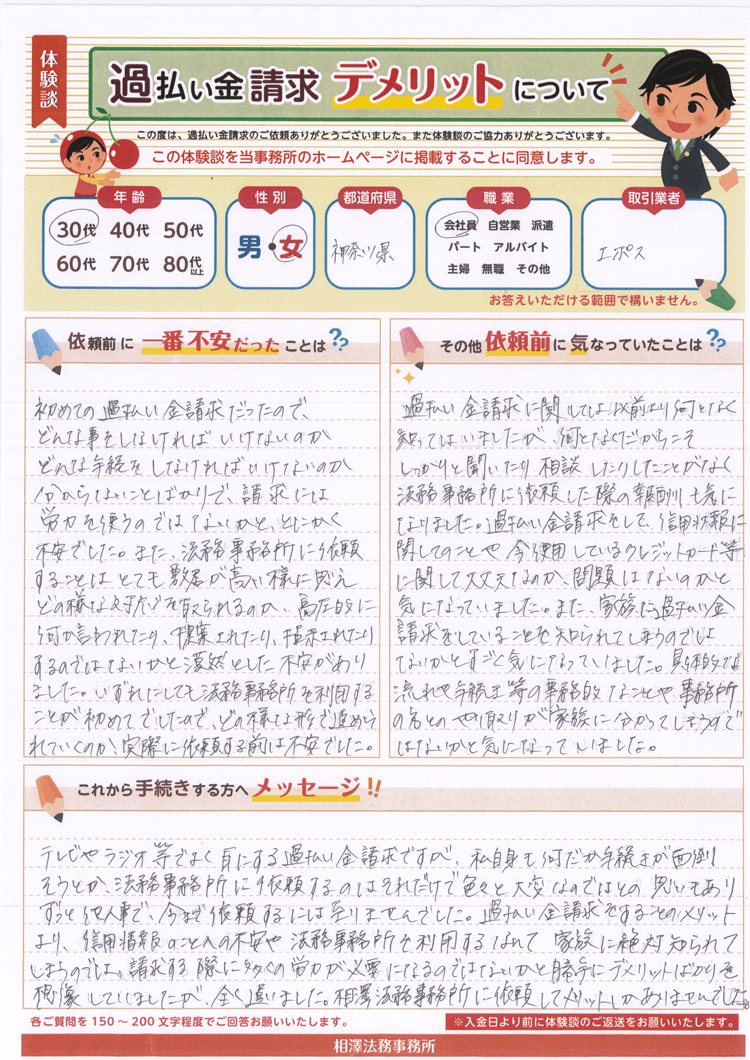 体験談
過払い金請求 デメリットについて
この度は、過払い金請求のご依頼ありがとうございました。また体験談のご協力ありがとうございます。
この体験談を当事務所のホームページに掲載することに同意します。
年齢
30代 40代 50代
60代 70代 80代以上
性別
男・女
都道府県
神奈川県
職業
会社員 自営業 派遣
パート アルバイト
主婦 無職 その他
取引業者
エポス
お答えいただける範囲で構いません。
依頼前に 一番不安だった ことは??
初めての過払い金請求だったので、
どんな事をしなければいけないのか
どんな手続をしなければいけないのか
分からないことばかりで、請求には
労力を使うのではないかと、とにかく
不安でした。また、法務事務所に依頼
することはとても敷居が高い様に思え
どの様な対応を取られるのか、高圧的に
何か言われたり、提案されたり、指示されたり
するのではないかと漠然とした不安があり
ました。いずれにしても法務事務所を利用する
ことが初めてでしたので、どの様な形で進めら
れていくのか、実際に依頼する前は不安でした。
その他 依頼前に気なっていたことは??
過払い金請求に関しては以前より何となく
知ってはいましたが、何となくだからこそ
しっかりと聞いたり相談したりしたことがなく
法務事務所に依頼した際の報酬も気に
なりました。過払い金請求をして、信用情報に
関してのことや今使用しているクレジットカード等
に関して大丈夫なのか、問題はないのかと
気になっていました。また、家族に過払い金
請求をしていることを知られてしまうのでは
ないかとすごく気になっていました。具体的な
流れや手続き等の事務的なことや、事務所
の方とのやり取りが家族に分かってしまうので
はないかと気になっていました。
これから手続きする方へメッセージ!!
テレビやラジオ等でよく耳にする過払い金請求ですが、私自身も何だか手続きが面倒
そうとか、法務事務所に依頼するのはそれだけで色々と大変なのではとの思いもあり
ずっと他人事で、今まで依頼するには至りませんでした。過払い金請求をすることのメリット
より、信用情報のことへの不安や法務事務所を利用するなんて 家族に絶対知られて
しまうのでは、請求する際に多くの労力が必要になるのではないかと勝手にデメリットばかりを
想像していましたが、全く違いました。相澤法務事務所に依頼してメリットしかありませんでした。
各ご質問を150～200文字程度でご回答お願いいたします。
※入金日より前に体験談のご返送をお願いいたします。
相澤法務事務所